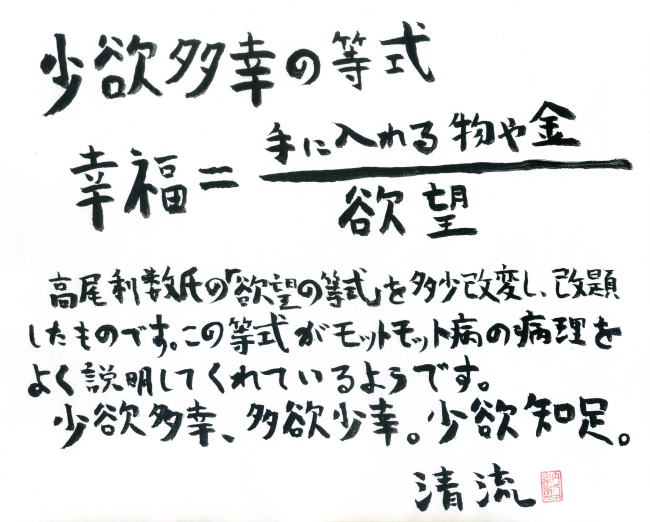 少欲多幸の等式
幸福＝手に入れる物や金
欲望
高尾利数氏の「欲望の等式」を多少改変し、改題
したものです。この等式がモットモット病の病理を
よく説明してくれているようです。
少欲多幸、多欲少幸。少欲知足。
清流